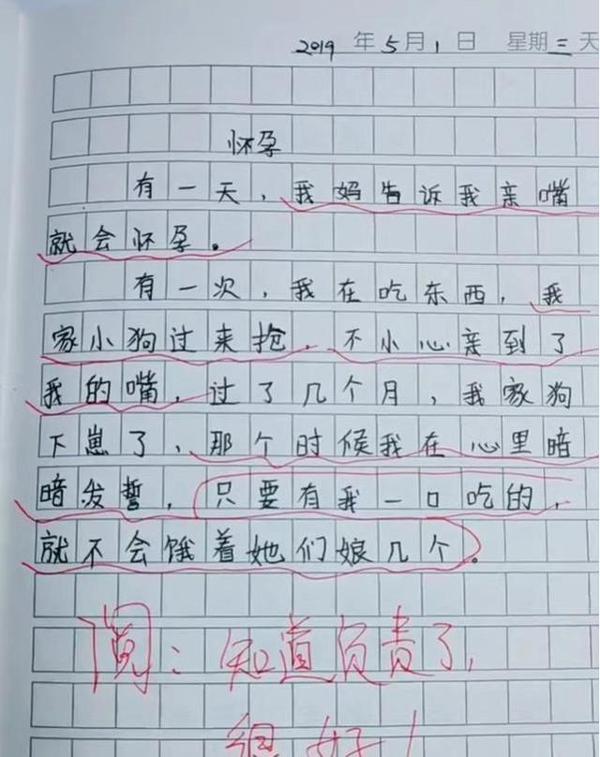 2019年5月1日 星期三 天
怀孕
有一天，我妈告诉我亲嘴
就会怀孕。
有一次，我在吃东西，我
家小狗过来抢，不小心亲到了
我的嘴，过了几个月，我家狗
下崽了、那个时候我在心里暗
暗发誓，只要有我一口吃的，
就不会饿着她们娘几个。
阅：知道负责了，
很好！